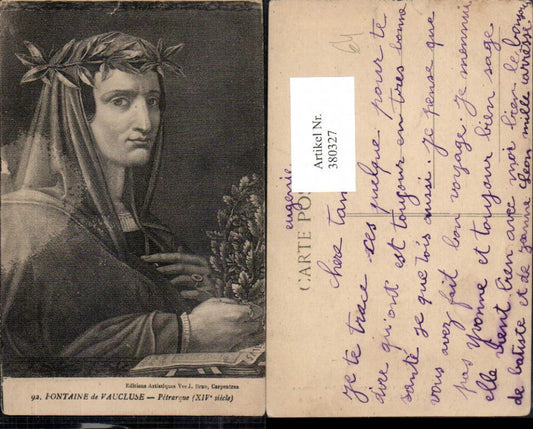 Editions Artistiques Vve J. Brun, Carpentras
92. FONTAINE de VAUCLUSE — Pétrarque (XIVe siècle)
64
Artikel Nr.
380327
CARTE POS
eugenie
chere tan
je te trace ces quelque pour te
dire qu'ont est toujour en tres bonne
santé je que tois aussi. je pense que
vous avez fait bon voyage. je mennui
pas yvonne et toujour bien sage
elle vient bien avec moi bien le bonjour
de batiste et de jeanne
Leon mille caresse